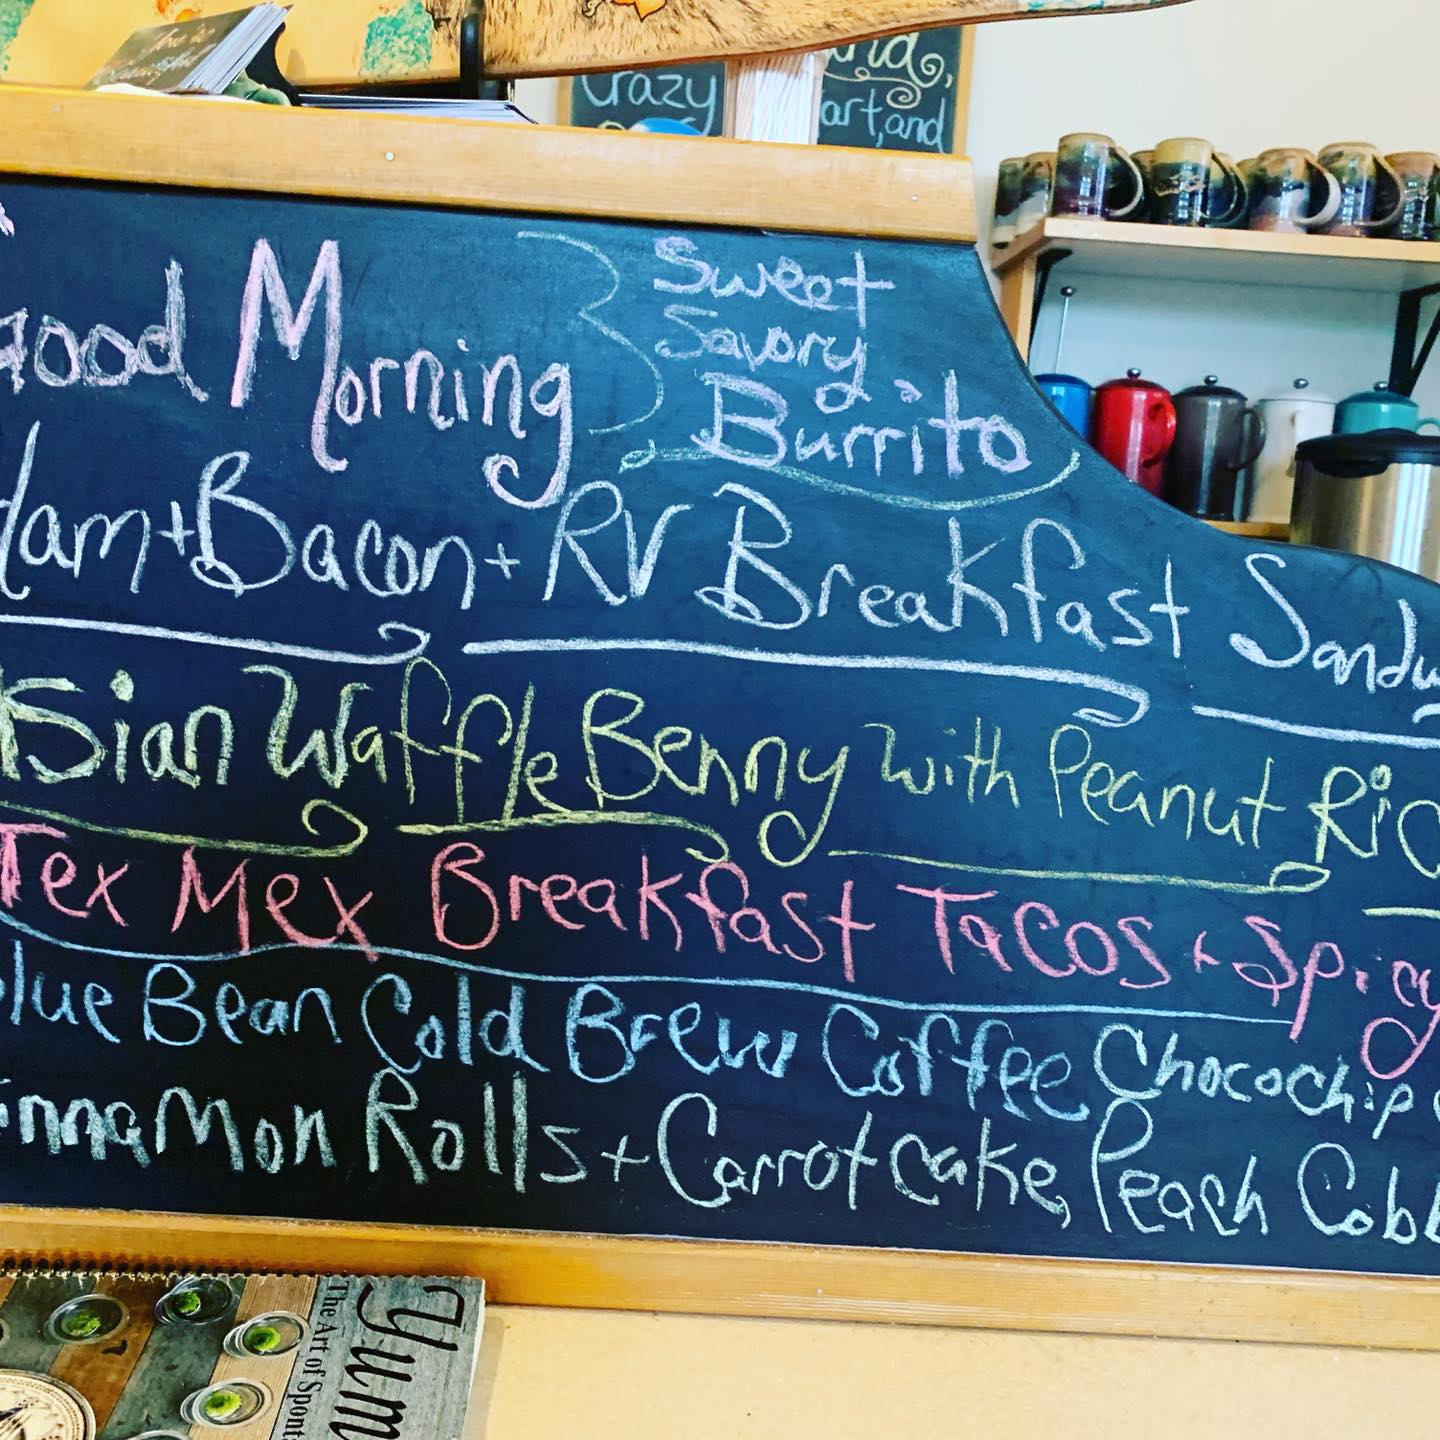 Crazy
art, and
Good Morning
Sweet
Savory
Burrito
Ham + Bacon + RV Breakfast Sandw
Asian Waffle Benny with Peanut Ric
Tex Mex Breakfast Tacos + Spicy
Blue Bean Cold Brew Coffee Chocochip
innamon Rolls + Carrot cake, Peach Cobb
Yum
The Art of Spont